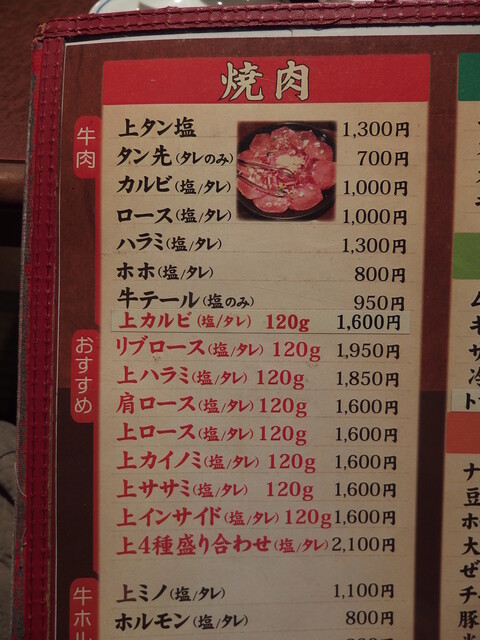 焼肉
牛肉
上タン塩 1,300円
タン先(タレのみ) 700円
カルビ(塩/タレ) 1,000円
ロース(塩/タレ) 1,000円
ハラミ(塩/タレ) 1,300円
ホホ(塩/タレ) 800円
牛テール(塩のみ) 950円
おすすめ
上カルビ(塩/タレ) 120g 1,600円
リブロース(塩/タレ) 120g 1,950円
上ハラミ(塩/タレ) 120g 1,850円
肩ロース(塩/タレ) 120g 1,600円
上ロース(塩/タレ) 120g 1,600円
上カイノミ(塩/タレ) 120g 1,600円
上ササミ(塩/タレ) 120g 1,600円
上インサイド(塩/タレ) 120g 1,600円
上4種盛り合わせ(塩/タレ) 2,100円
牛ホル
上ミノ(塩/タレ) 1,100円
ホルモン(塩/タレ) 800円
冷
ト
ナ
豆
ホ
大
ぜ
チ
豚